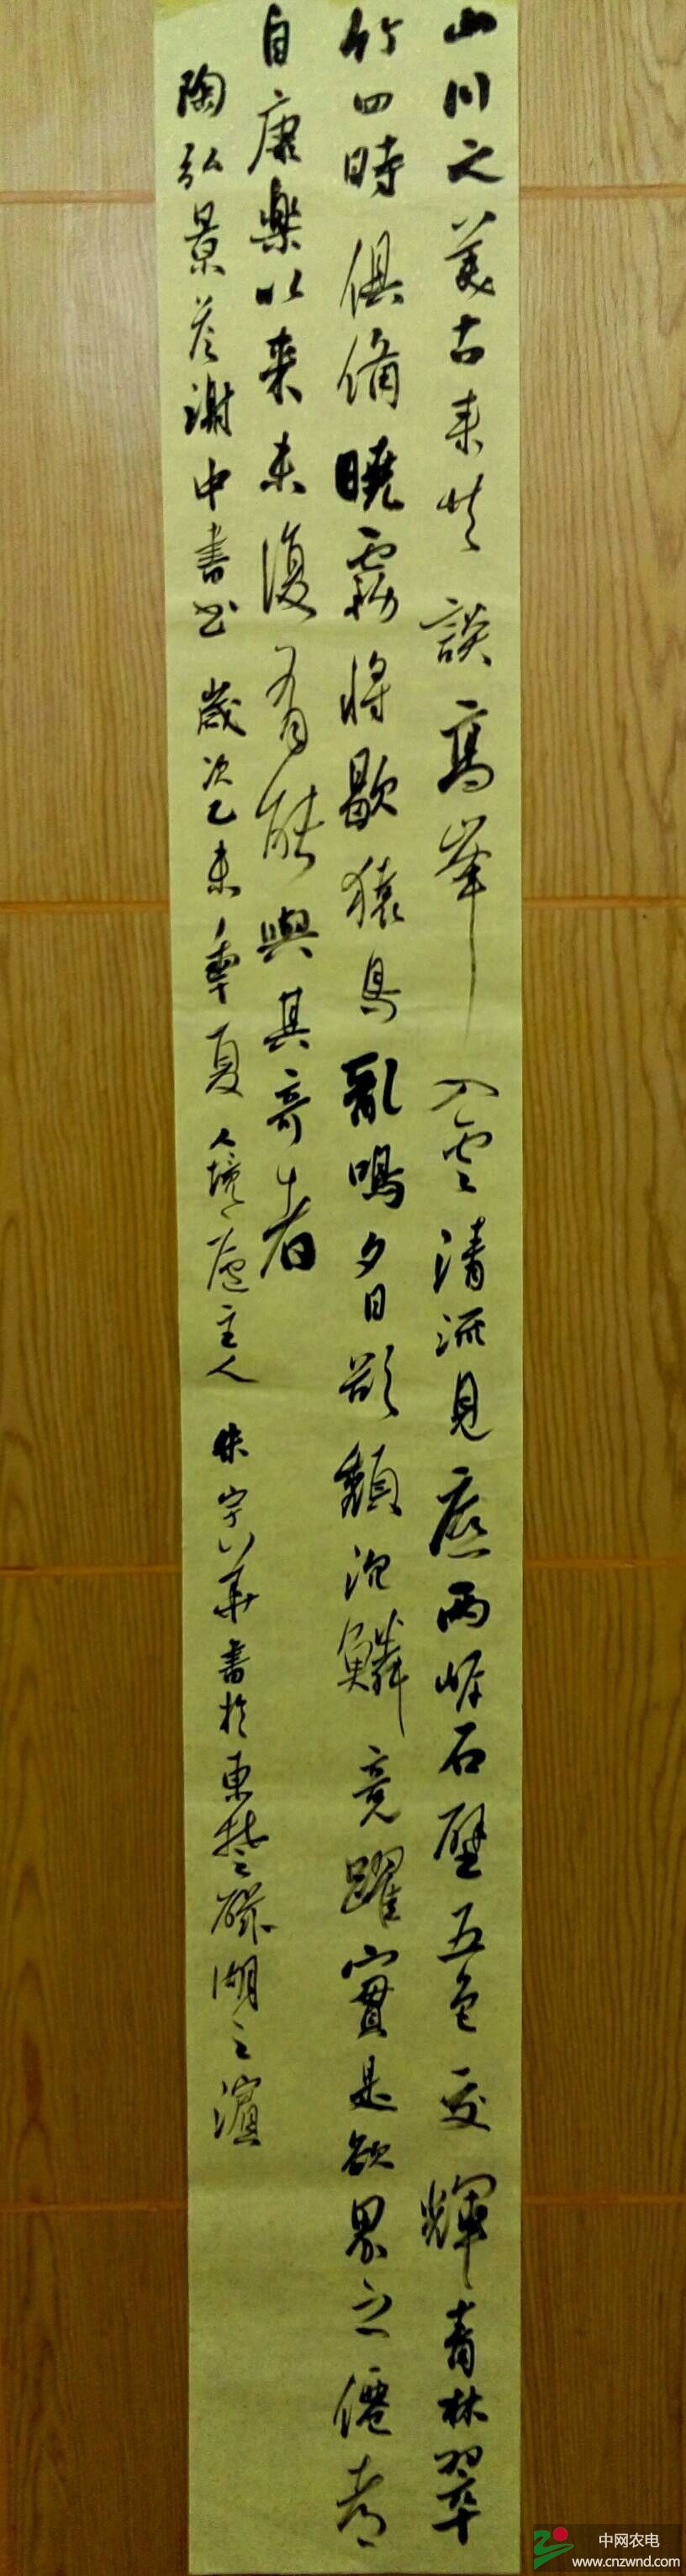 山川之美古来共談高峯入雲清流見底兩岸石壁五色交輝青林翠
竹四時俱備曉霧將歇猿鳥亂鳴夕日欲頹沉鱗競躍實是欲界之僊都
自康樂以来未復有能與其奇者
陶弘景答謝中書書 歲次乙未季夏 人境廬主人 朱宇華書於東楚磁湖之濱
中网农电
www.cnzwnd.com